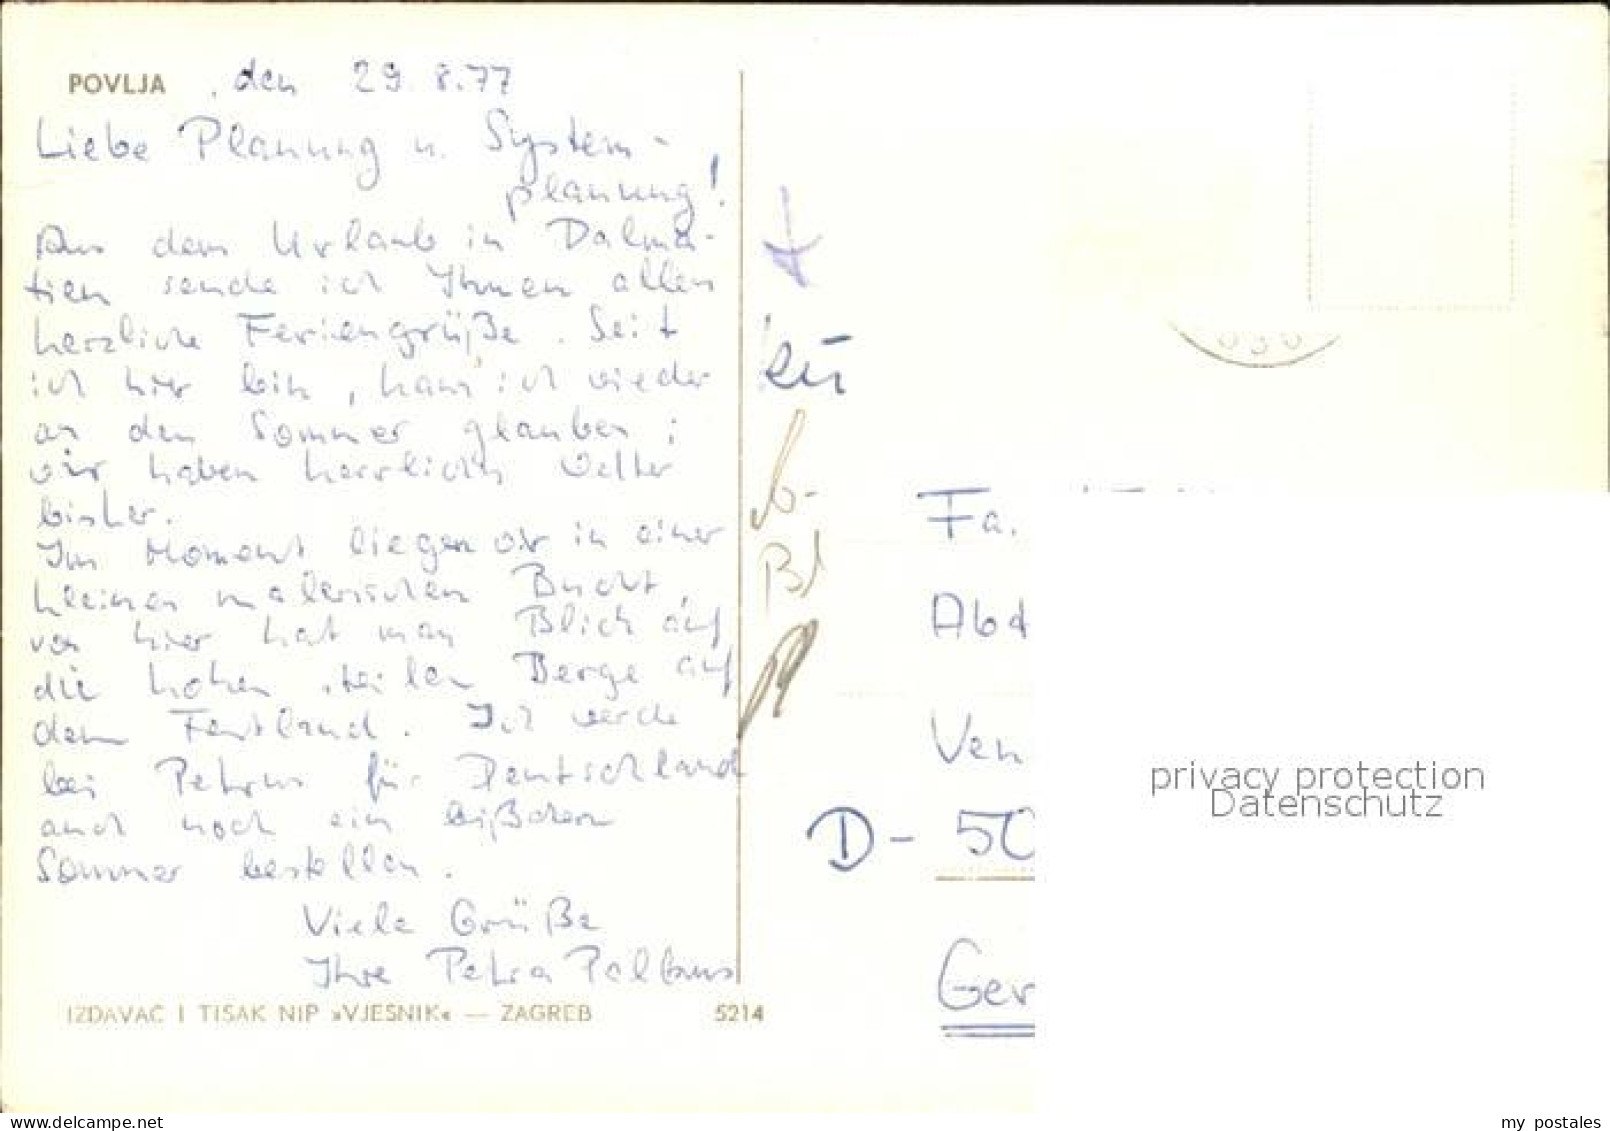 POVLJA , den 29. 8.77
Liebe Planung u. System-
planung!
Aus dem Urlaub in Dalma-
tien sende ich Ihnen allen
herzliche Feriengrüße. Seit
ich hier bin, kann ich wieder
an den Sommer glauben;
wir haben herrliches Wetter
bisher.
Im Moment liegen wir in einer
kleinen malerischen Bucht,
von hier hat man Blick auf
die hohen steilen Berge auf
dem Festland. Ich werde
bei Petrus für Deutschland
auch noch ein bißchen
Sommer bestellen.
Viele Grüße
Ihre Petra
IZDAVAČ I TISAK NIP »VJESNIK« — ZAGREB 5214
Fa.
Abt
Ven
D- 50
Ger
privacy protection
Datenschutz
delcampe.net
my postales